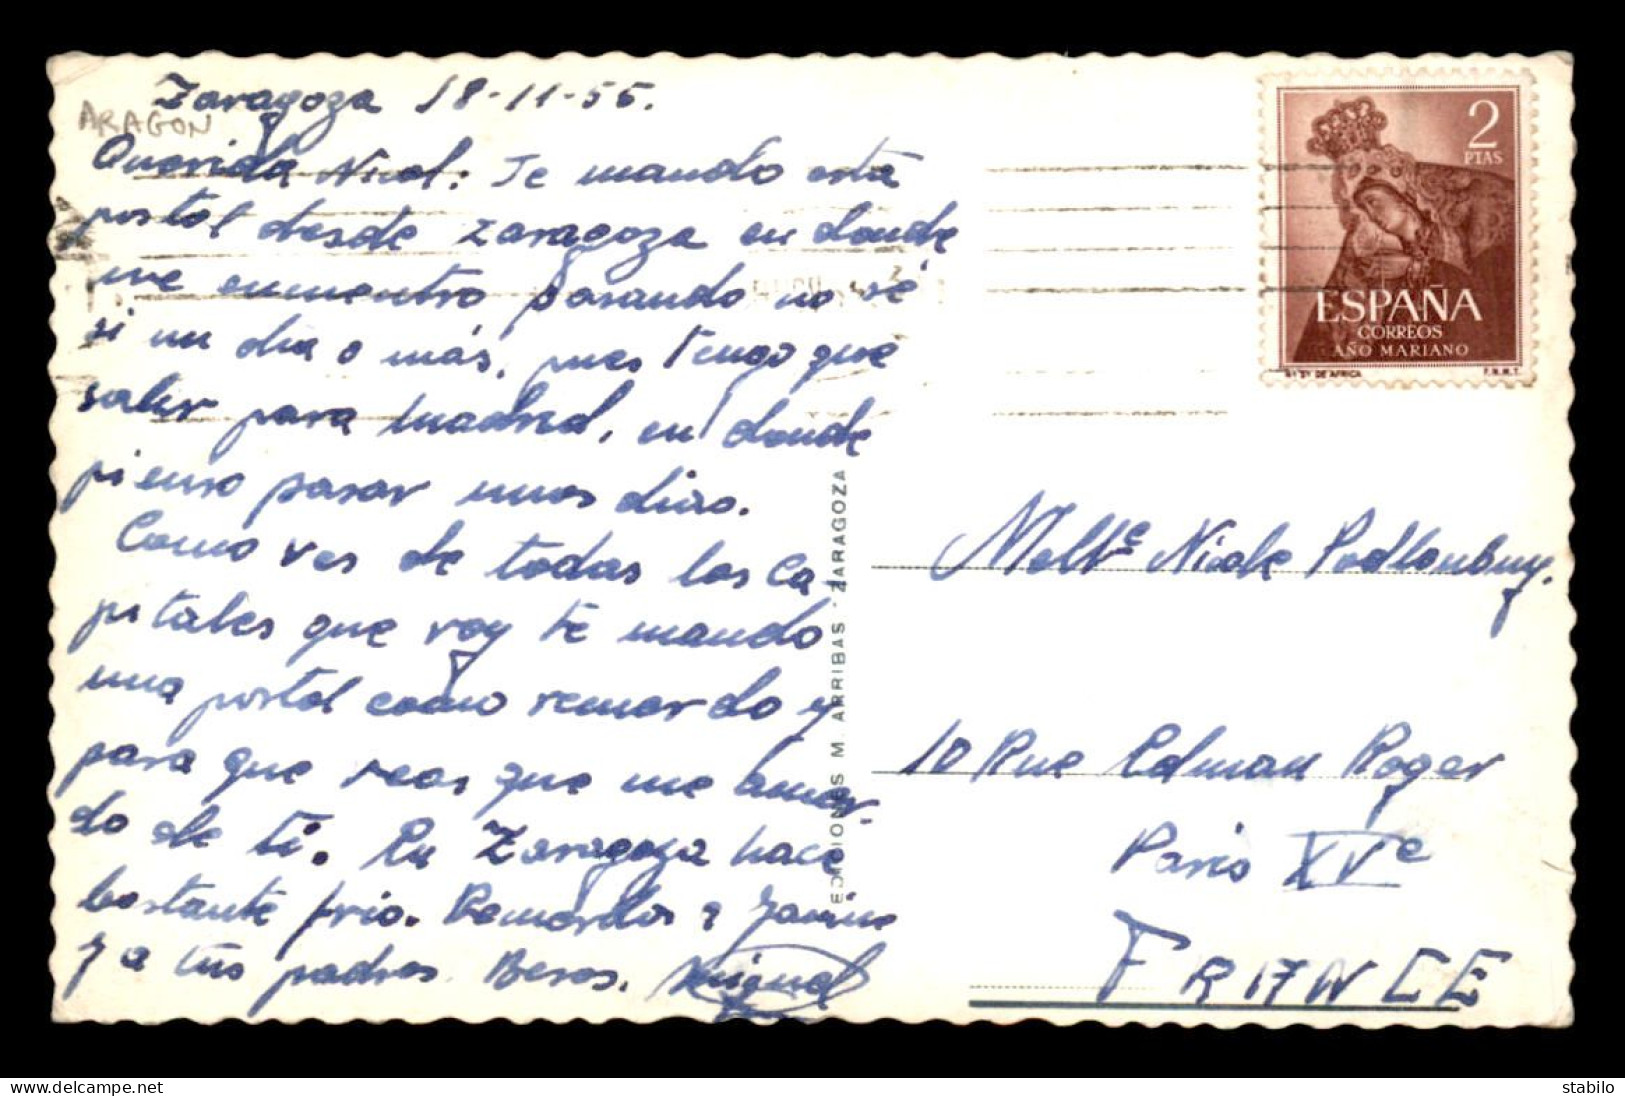 Zaragoza 18-11-55.
ARAGON
Querida Nicol: Te mando esta
postal desde Zaragoza en donde
me encuentro pasando no sé
si un dia o más, pues tengo que
salir para Madrid, en donde
pienso pasar unos dias.
Como ves de todas las ca-
pitales que voy te mando
una postal como recuerdo y
para que veas que me acuer-
do de ti. En Zaragoza hace
bastante frio. Recuerdos a Janine
y a tus padres. Besos. Miguel
EDICIONES M. ARRIBAS - ZARAGOZA
2
PTAS
ESPAÑA
CORREOS
AÑO MARIANO
STª Mª DE AFRICA
F.N.M.T.
Melle Nicole
10 Rue Edman Roger
Paris XVe
FRANCE
delcampe.net
stabilo